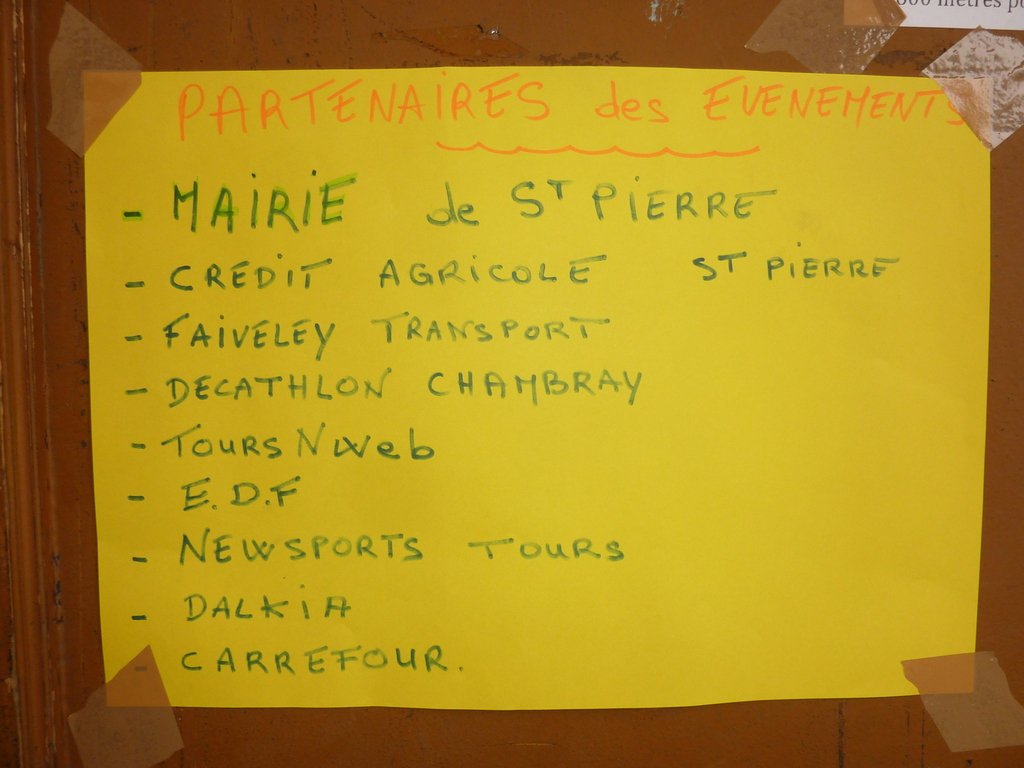 000 mètres
PARTENAIRES des EVENEMENTS
- MAIRIE de ST PIERRE
- CREDIT AGRICOLE ST PIERRE
- FAIVELEY TRANSPORT
- DECATHLON CHAMBRAY
- TOURS Nweb
- E.D.F
- NEWSPORTS TOURS
- DALKIA
- CARREFOUR.